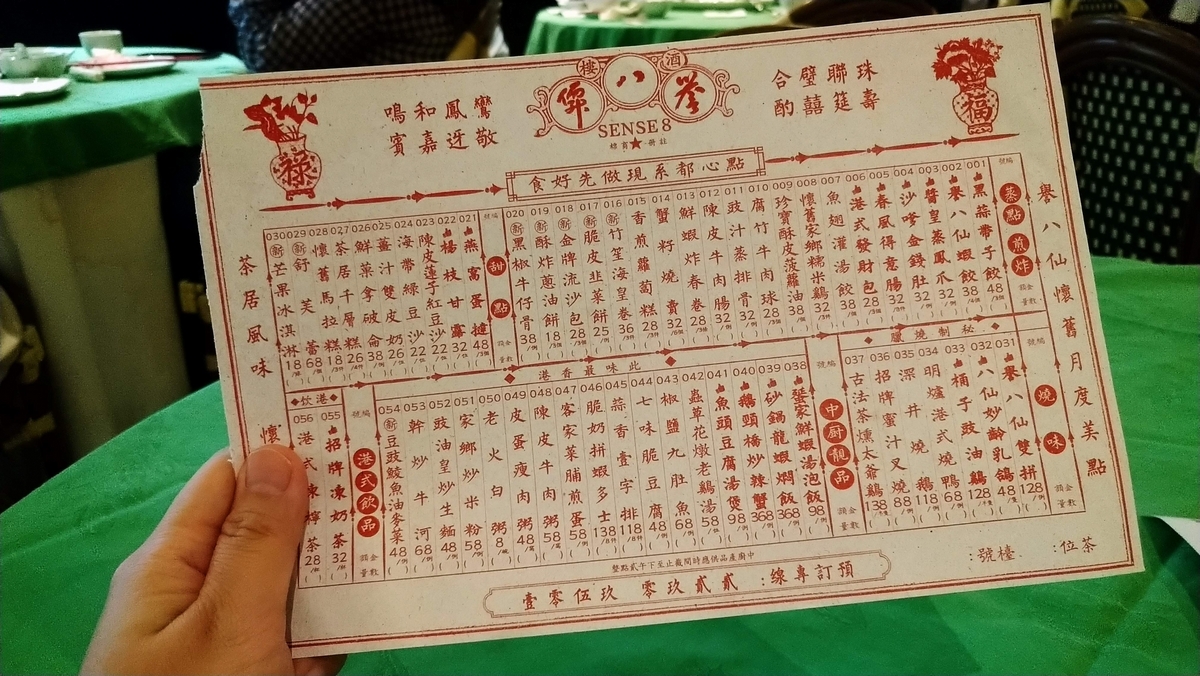 酒樓
譽八僊
SENSE 8
珠聯璧合
壽筵囍酌
鸞鳳和鳴
敬迓嘉賓
福
祿
點心都系現做先好食
譽八仙懷舊月度美點
蒸點煎炸
編號
金額
數量
001 黑蒜帶子餃 48
002 譽八仙蝦餃 38
003 醬皇蒸鳳爪 32
004 沙爹金錢肚 32
005 春風得意腸 32
006 港式發財包 28
007 魚翅灌湯餃 38
008 懷舊家鄉糯米鷄 32
009 珍寶酥皮菠蘿油 38
010 腐竹牛肉球 28
011 豉汁蒸排骨 28
012 陳皮牛肉腸 28
013 鮮蝦炸春卷 28
014 蟹籽燒賣 32
015 香煎蘿蔔糕 28
016 新 竹笙海皇卷 36
017 新 脆皮韭菜餅 25
018 新 金牌流沙包 28
019 新 酥炸蔥油餅 18
020 新 黑椒牛仔骨 38
甜點
編號
金額
數量
021 燕窩蛋撻 48
022 楊枝甘露 32
023 陳皮蓮子紅豆沙 22
024 海帶綠豆沙 22
025 薑汁雙皮奶 26
026 鮮菓拿破侖 38
027 茶居千層糕 26
028 懷舊馬拉糕 18
029 新 舒芙蕾 68
030 新 芒果冰淇淋 18
茶居風味
懷
此味最香港
秘制燒臘
燒味
編號
金額
數量
031 譽八仙雙拼 128
032 八仙妙齡乳鴿 48
033 桶子豉油鷄 128
034 明爐港式燒鴨 68
035 深井燒鵝 118
036 招牌蜜汁叉燒 88
037 古法茶燻太爺鷄 138
中厨靚品
編號
金額
數量
038 蜑家鮮蝦湯泡飯 98
039 砂鍋龍蝦燜飯 368
040 鵝頸橋炒辣蟹 368
041 魚頭豆腐湯煲 98
042 蟲草花燉老鷄湯 58
043 椒鹽九肚魚 68
044 七味脆豆腐 48
045 蒜香壹字排 118
046 脆奶拼蝦多士 138
047 客家菜脯煎蛋 58
048 陳皮牛肉粥 58
049 皮蛋瘦肉粥 48
050 老火白粥 8
051 家鄉炒米粉 58
052 豉油皇炒生麵 48
053 幹炒牛河 68
054 新 豆豉鯪魚油麥菜 48
港飲
港式飲品
編號
金額
數量
055 招牌凍奶茶 32
056 港式凍檸茶 28
中廚產品供應時間截止至下午貳點整
預訂專線: 貳貳玖零 玖伍零壹
茶位:
檯號: